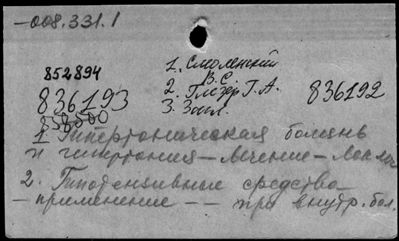 —008.331.1
852894
1. Смоленский
В.С.
836193
2. Глезер Г.А.
836192
3. Загл.
1 Гипертоническая болезнь
и гипертония — лечение —
2. Гипотензивные средства —
— применение — — при внутр. бол.